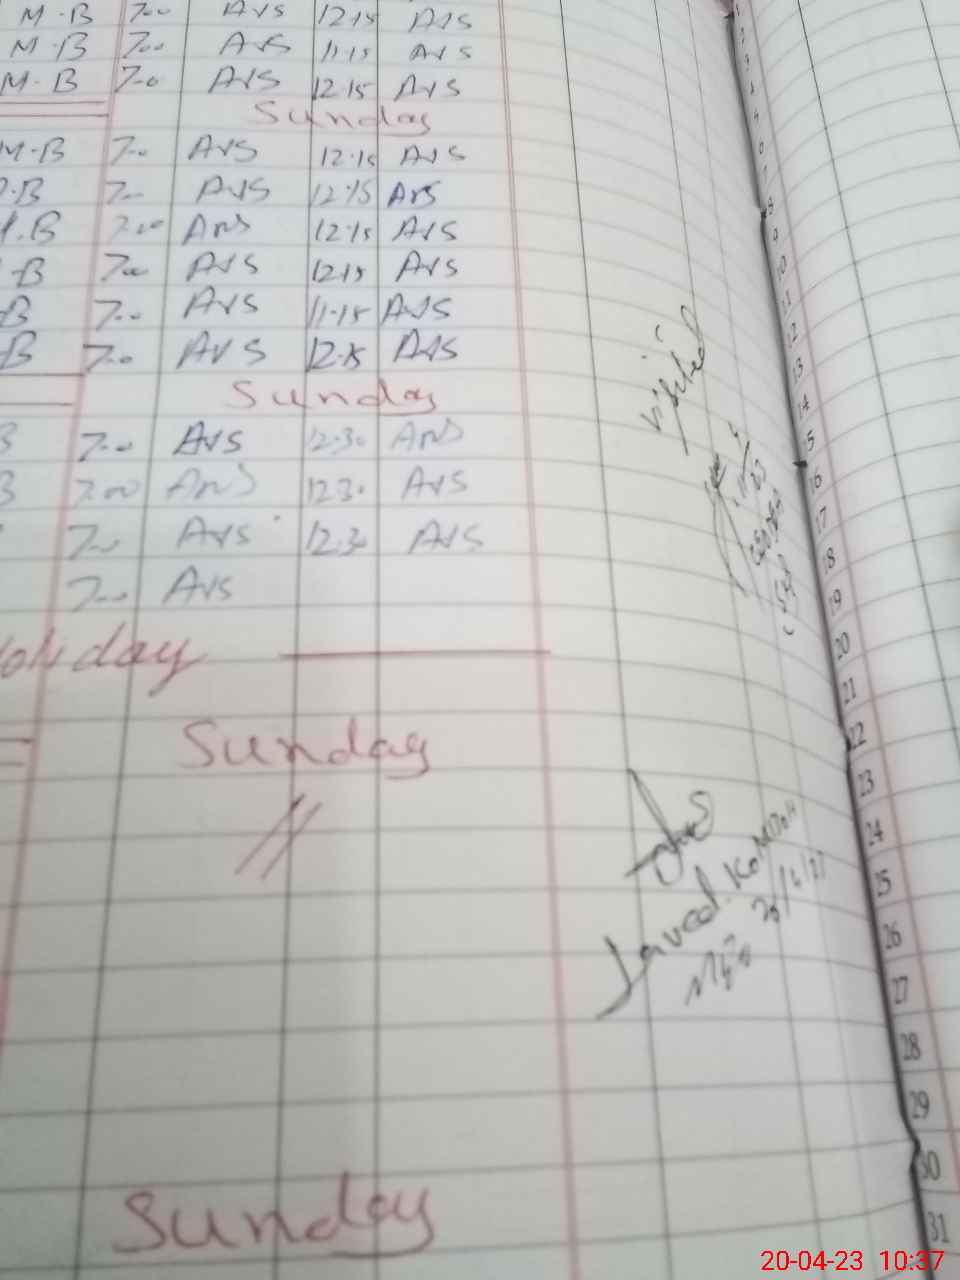 M-B 7:00 Avs 12:15 Avs
M-B 7:00 Avs 11:15 Avs
M-B 7:00 Avs 12:15 Avs
Sunday
M-B 7:00 Avs 12:15 Avs
-B 7:00 Avs 12:15 Avs
.B 7:00 Avs 12:15 Avs
-B 7:00 Avs 12:15 Avs
B 7:00 Avs 11:15 Avs
-B 7:00 Avs 12:15 Avs
Sunday
B 7:00 Avs 12:30 Avs
B 7:00 Avs 12:30 Avs
7:00 Avs 12:30 Avs
7:00 Avs
oliday
Sunday
Sunday
visited
Javed
1
2
3
4
5
6
7
8
9
10
11
12
13
14
15
16
17
18
19
20
21
22
23
24
25
26
27
28
29
30
31
20-04-23 10:37